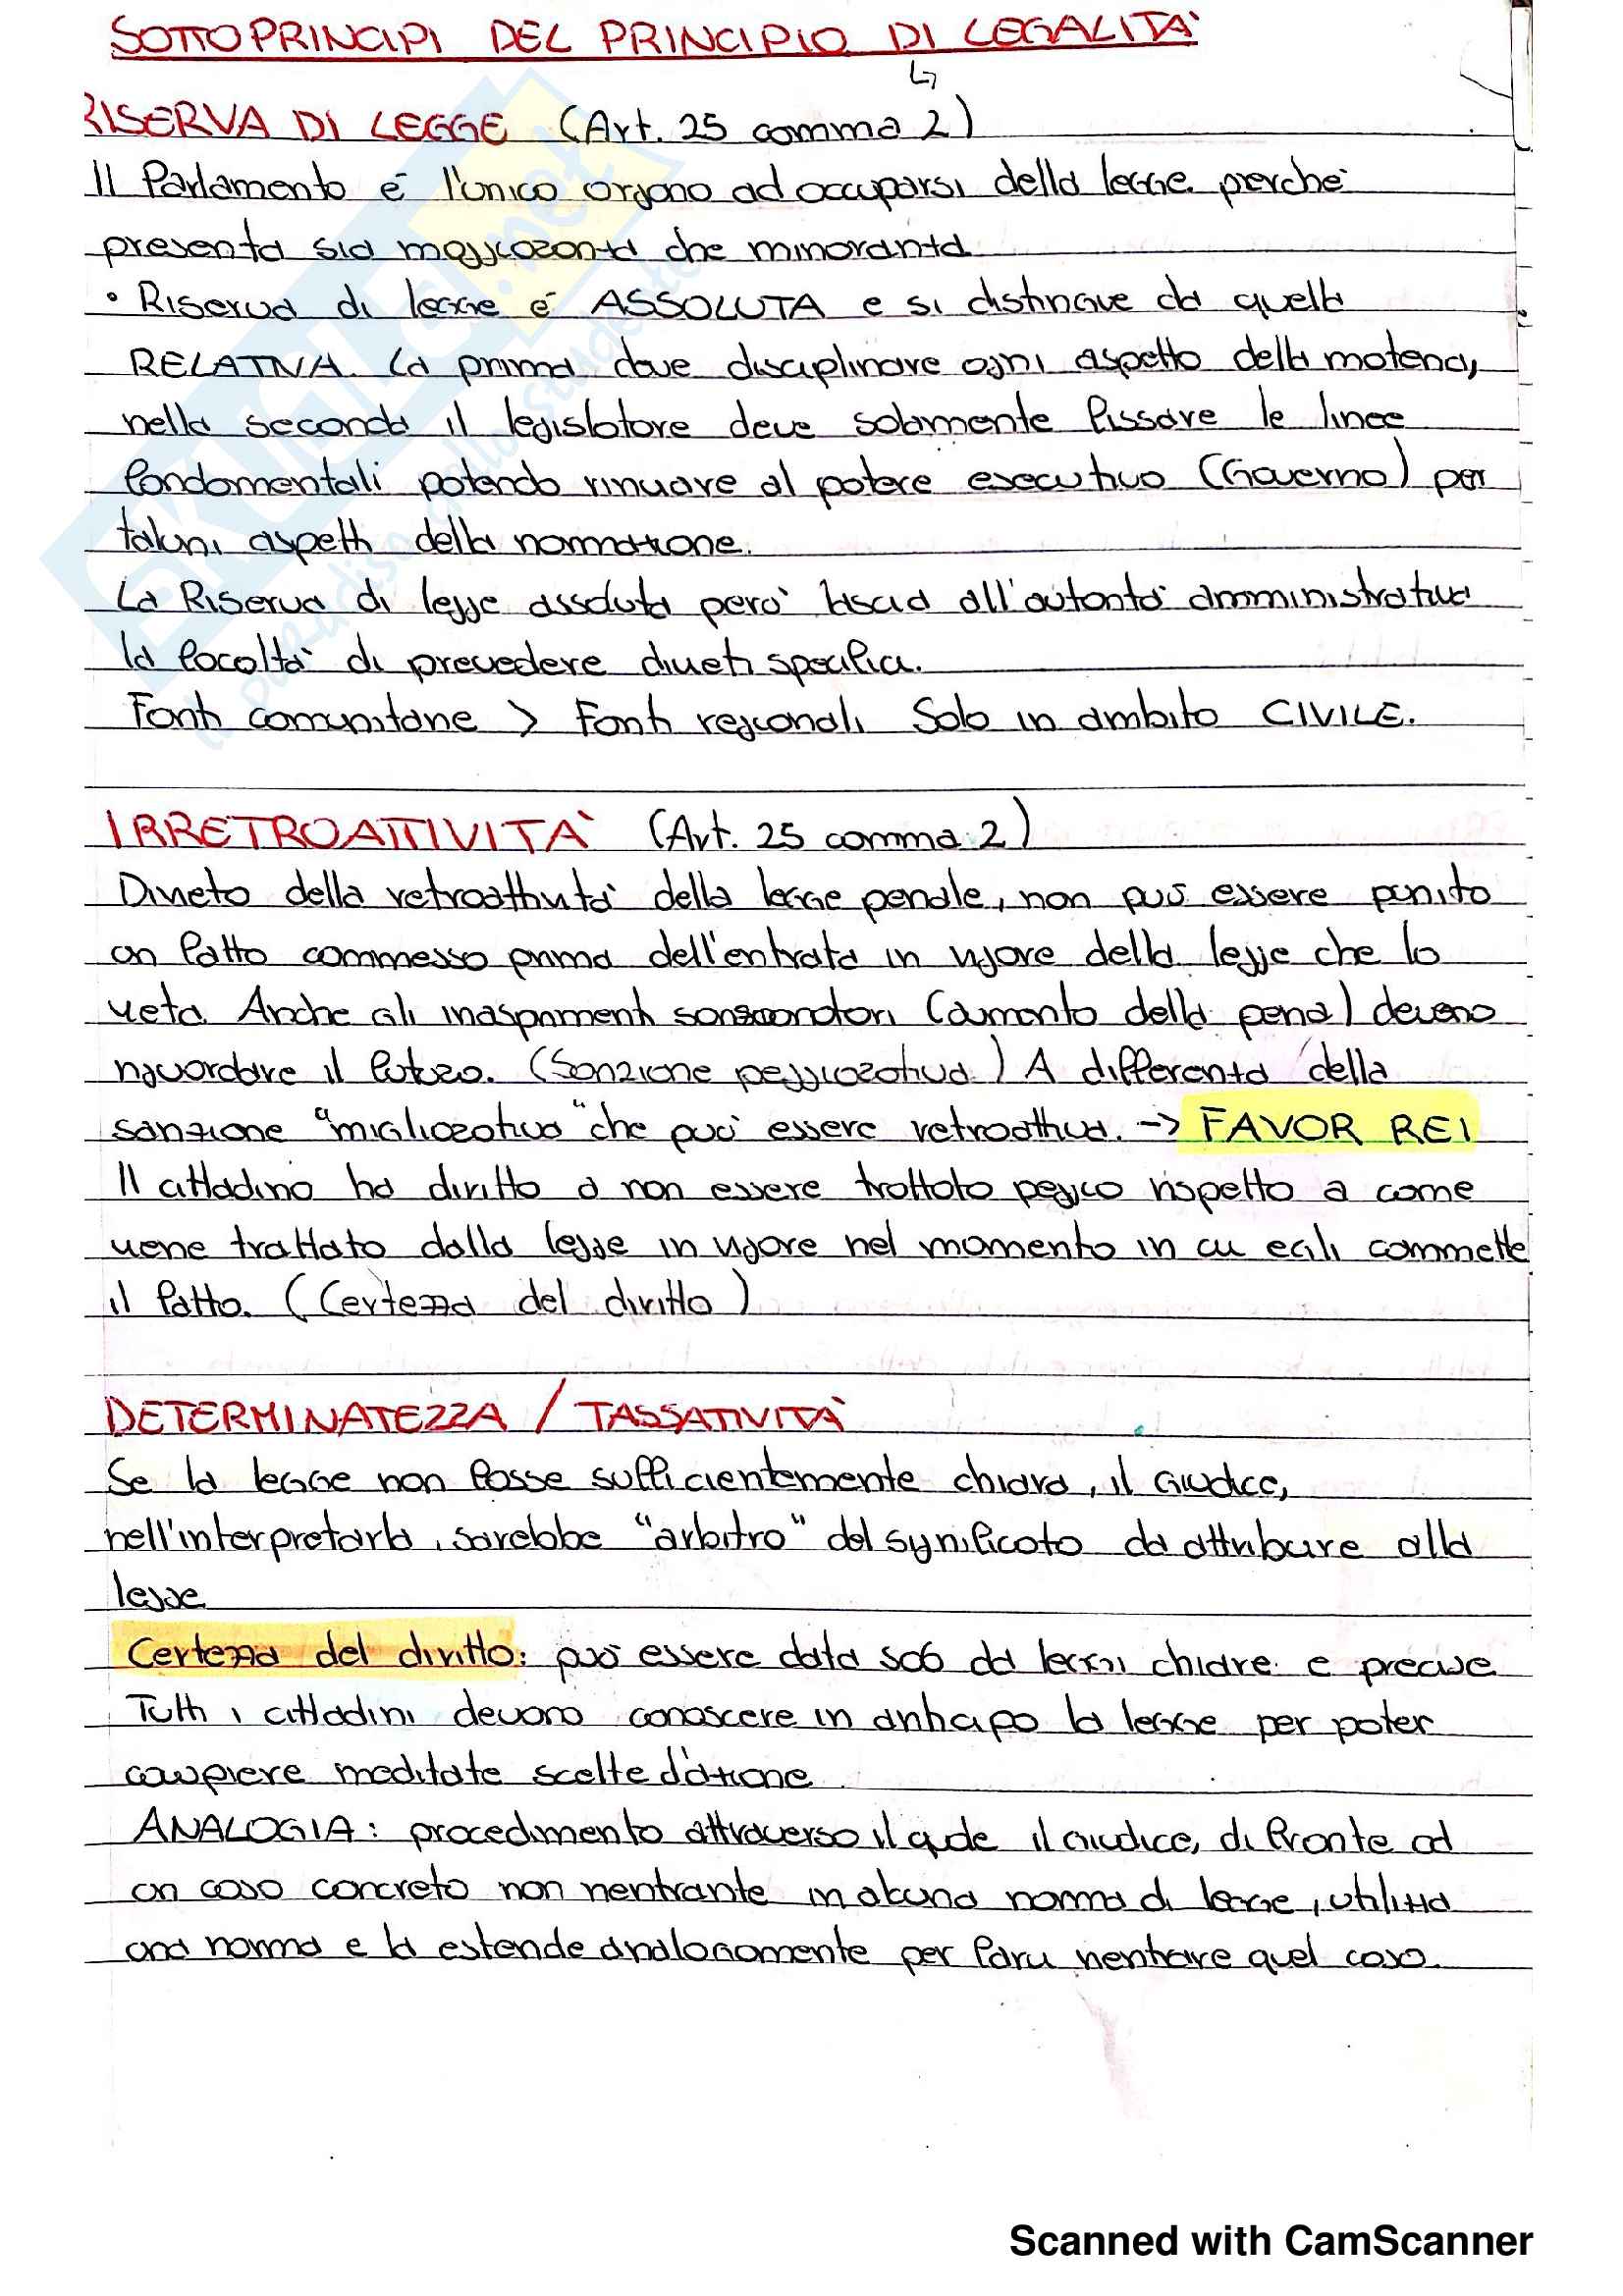 SOTTOPRINCIPI DEL PRINCIPIO DI LEGALITA'
RISERVA DI LEGGE (Art. 25 comma 2)
Il Parlamento è l'unico organo ad occuparsi della legge perchè
presenta sia maggioranza che minoranza
• Riserva di legge è ASSOLUTA e si distingue da quella
RELATIVA. La prima deve disciplinare ogni aspetto della materia,
nella seconda il legislatore deve solamente fissare le linee
fondamentali potendo rinviare al potere esecutivo (Governo) per
taluni aspetti della normazione.
La Riserva di legge assoluta però lascia all'autorità amministrativa
la facoltà di prevedere divieti specifici.
Fonti comunitarie > Fonti regionali Solo in ambito CIVILE.
IRRETROATTIVITA' (Art. 25 comma 2)
Divieto della retroattività della legge penale, non può essere punito
un fatto commesso prima dell'entrata in vigore della legge che lo
vieta. Anche gli inasprimenti sanzionatori (aumento della pena) devono
riguardare il futuro. (Sanzione peggiorativa) A differenza della
sanzione "migliorativa" che può essere retroattiva. -> FAVOR REI
Il cittadino ha diritto a non essere trattato peggio rispetto a come
viene trattato dalla legge in vigore nel momento in cui egli commette
il fatto. (Certezza del diritto)
DETERMINATEZZA / TASSATIVITA'
Se la legge non fosse sufficientemente chiara, il giudice,
nell'interpretarla, sarebbe "arbitro" del significato da attribuire alla
legge
Certezza del diritto: può essere data solo da leggi chiare e precise
Tutti i cittadini devono conoscere in anticipo la legge per poter
compiere meditate scelte d'azione
ANALOGIA: procedimento attraverso il quale il giudice, di fronte ad
un caso concreto non rientrante in alcuna norma di legge, utilizza
una norma e la estende analogamente per farvi rientrare quel caso.
Scanned with CamScanner